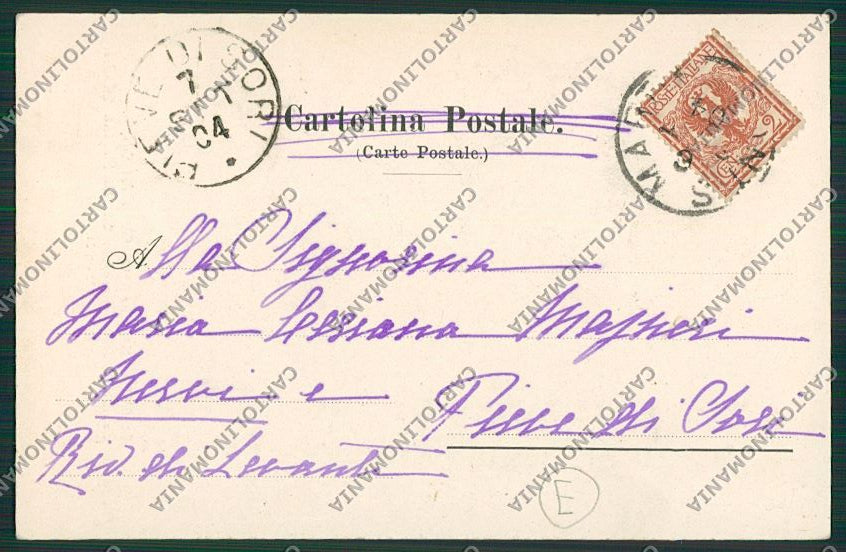 PIEVE DI SORI
7 7
04
Cartolina Postale.
(Carte Postale.)
POSTE ITALIANE
2
S. MA
Alla Signorina
Maria
Nervi e Pieve di Sori
Riv. di Levante
E
CARTOLINOMANIA